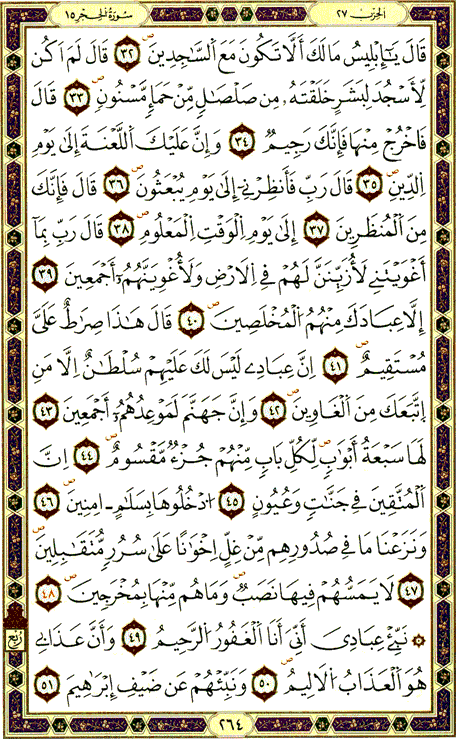 الحزب ٢٧
سورة الحجر ١٥
قَالَ يَٰٓإِبْلِيسُ مَا لَكَ أَلَّا تَكُونَ مَعَ ٱلسَّٰجِدِينَ ٣٢ قَالَ لَمْ أَكُن
لِّأَسْجُدَ لِبَشَرٍ خَلَقْتَهُۥ مِن صَلْصَٰلٍ مِّنْ حَمَإٍ مَّسْنُونٍ ٣٣ قَالَ
فَٱخْرُجْ مِنْهَا فَإِنَّكَ رَجِيمٌ ٣٤ وَإِنَّ عَلَيْكَ ٱللَّعْنَةَ إِلَىٰ يَوْمِ
ٱلدِّينِ ٣٥ قَالَ رَبِّ فَأَنظِرْنِىٓ إِلَىٰ يَوْمِ يُبْعَثُونَ ٣٦ قَالَ فَإِنَّكَ
مِنَ ٱلْمُنظَرِينَ ٣٧ إِلَىٰ يَوْمِ ٱلْوَقْتِ ٱلْمَعْلُومِ ٣٨ قَالَ رَبِّ بِمَآ
أَغْوَيْتَنِى لَأُزَيِّنَنَّ لَهُمْ فِى ٱلَارْضِ وَلَأُغْوِيَنَّهُمُۥٓ أَجْمَعِينَ ٣٩
إِلَّا عِبَادَكَ مِنْهُمُ ٱلْمُخْلَصِينَ ٤٠ قَالَ هَٰذَا صِرَٰطٌ عَلَىَّ
مُسْتَقِيمٌ ٤١ إِنَّ عِبَادِى لَيْسَ لَكَ عَلَيْهِمْ سُلْطَٰنٌ اِلَّا مَنِ
ٱتَّبَعَكَ مِنَ ٱلْغَاوِينَ ٤٢ وَإِنَّ جَهَنَّمَ لَمَوْعِدُهُمُۥٓ أَجْمَعِينَ ٤٣
لَهَا سَبْعَةُ أَبْوَٰبٍ لِّكُلِّ بَابٍ مِّنْهُمْ جُزْءٌ مَّقْسُومٌ ٤٤ اِنَّ
ٱلْمُتَّقِينَ فِى جَنَّٰتٍ وَعُيُونٍ ٤٥ ٱدْخُلُوهَا بِسَلَٰمٍ ـ امِنِينَ ٤٦
وَنَزَعْنَا مَا فِى صُدُورِهِم مِّنْ غِلٍّ اِخْوَٰنًا عَلَىٰ سُرُرٍ مُّتَقَٰبِلِينَ
٤٧ لَا يَمَسُّهُمْ فِيهَا نَصَبٌ وَمَا هُم مِّنْهَا بِمُخْرَجِينَ ٤٨
۞ نَبِّئْ عِبَادِىَ أَنِّىَ أَنَا ٱلْغَفُورُ ٱلرَّحِيمُ ٤٩ وَأَنَّ عَذَابِى
ربع
هُوَ ٱلْعَذَابُ ٱلَالِيمُ ٥٠ وَنَبِّئْهُمْ عَن ضَيْفِ إِبْرَٰهِيمَ ٥١
٢٦٤